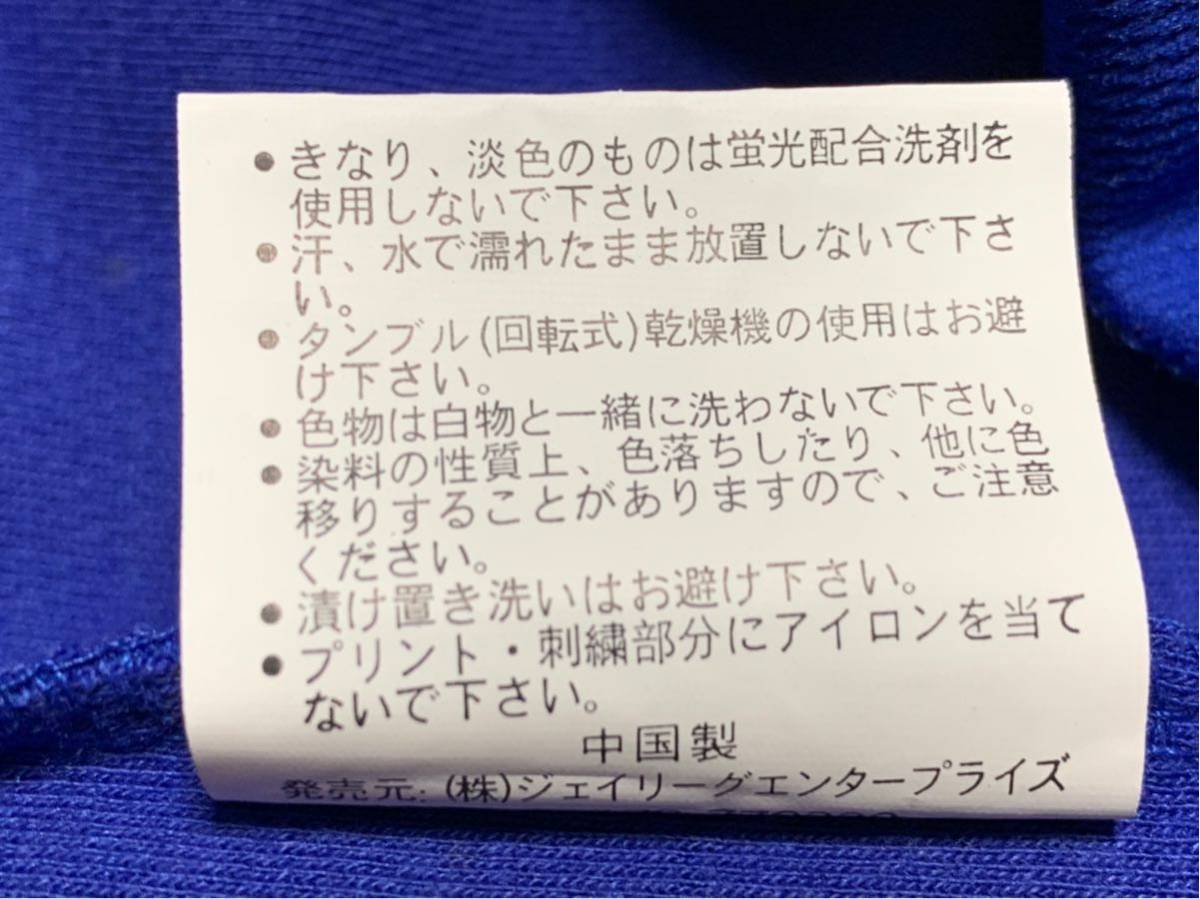 ● きなり、淡色のものは蛍光配合洗剤を
使用しないで下さい。
● 汗、水で濡れたまま放置しないで下さ
い。
● タンブル(回転式)乾燥機の使用はお避
け下さい。
● 色物は白物と一緒に洗わないで下さい。
● 染料の性質上、色落ちしたり、他に色
移りすることがありますので、ご注意
ください。
● 漬け置き洗いはお避け下さい。
● プリント・刺繍部分にアイロンを当て
ないで下さい。
中国製
発売元:(株)ジェイリーグエンタープライズ